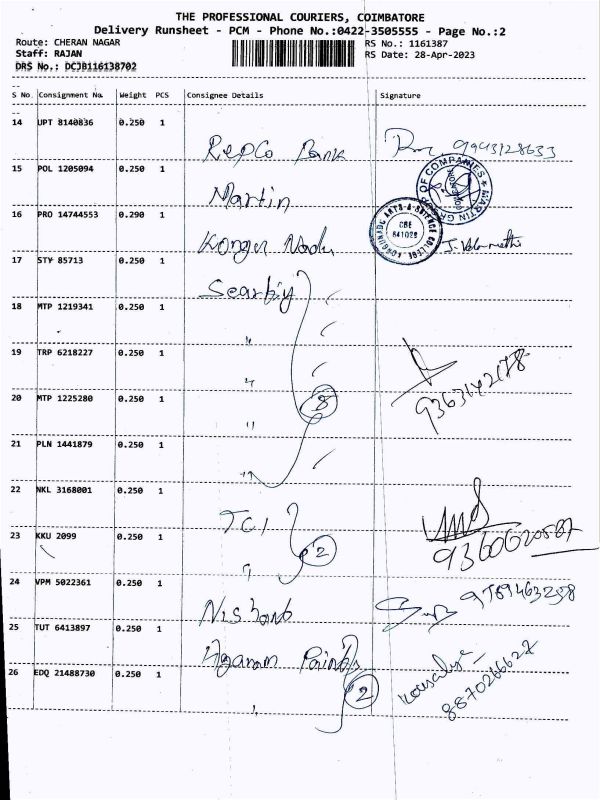 THE PROFESSIONAL COURIERS, COIMBATORE
Delivery Runsheet - PCM - Phone No.:0422-3505555 - Page No.:2
Route: CHERAN NAGAR RS No.: 1161387
Staff: RAJAN RS Date: 28-Apr-2023
DRS No.: DCJB116138702
S No. Consignment No. Weight PCS Consignee Details Signature
14 UPT 8140836 0.250 1
Repco Bank 9943128633
15 POL 1205094 0.250 1
Martin
OF COMPANIES ★ MARTIN
16 PRO 14744553 0.290 1
KONGUNADU ARTS & SCIENCE COLLEGE
CBE
641029
17 STY 85713 0.250 1
18 MTP 1219341 0.250 1
"
19 TRP 6218227 0.250 1
"
9363142178
20 MTP 1225280 0.250 1
8
"
21 PLN 1441879 0.250 1
"
22 NKL 3168001 0.250 1
TCI
23 KKU 2099 0.250 1
2
24 VPM 5022361 0.250 1
25 TUT 6413897 0.250 1
Agaram Paints
26 EDQ 21488730 0.250 1
2
8870266627